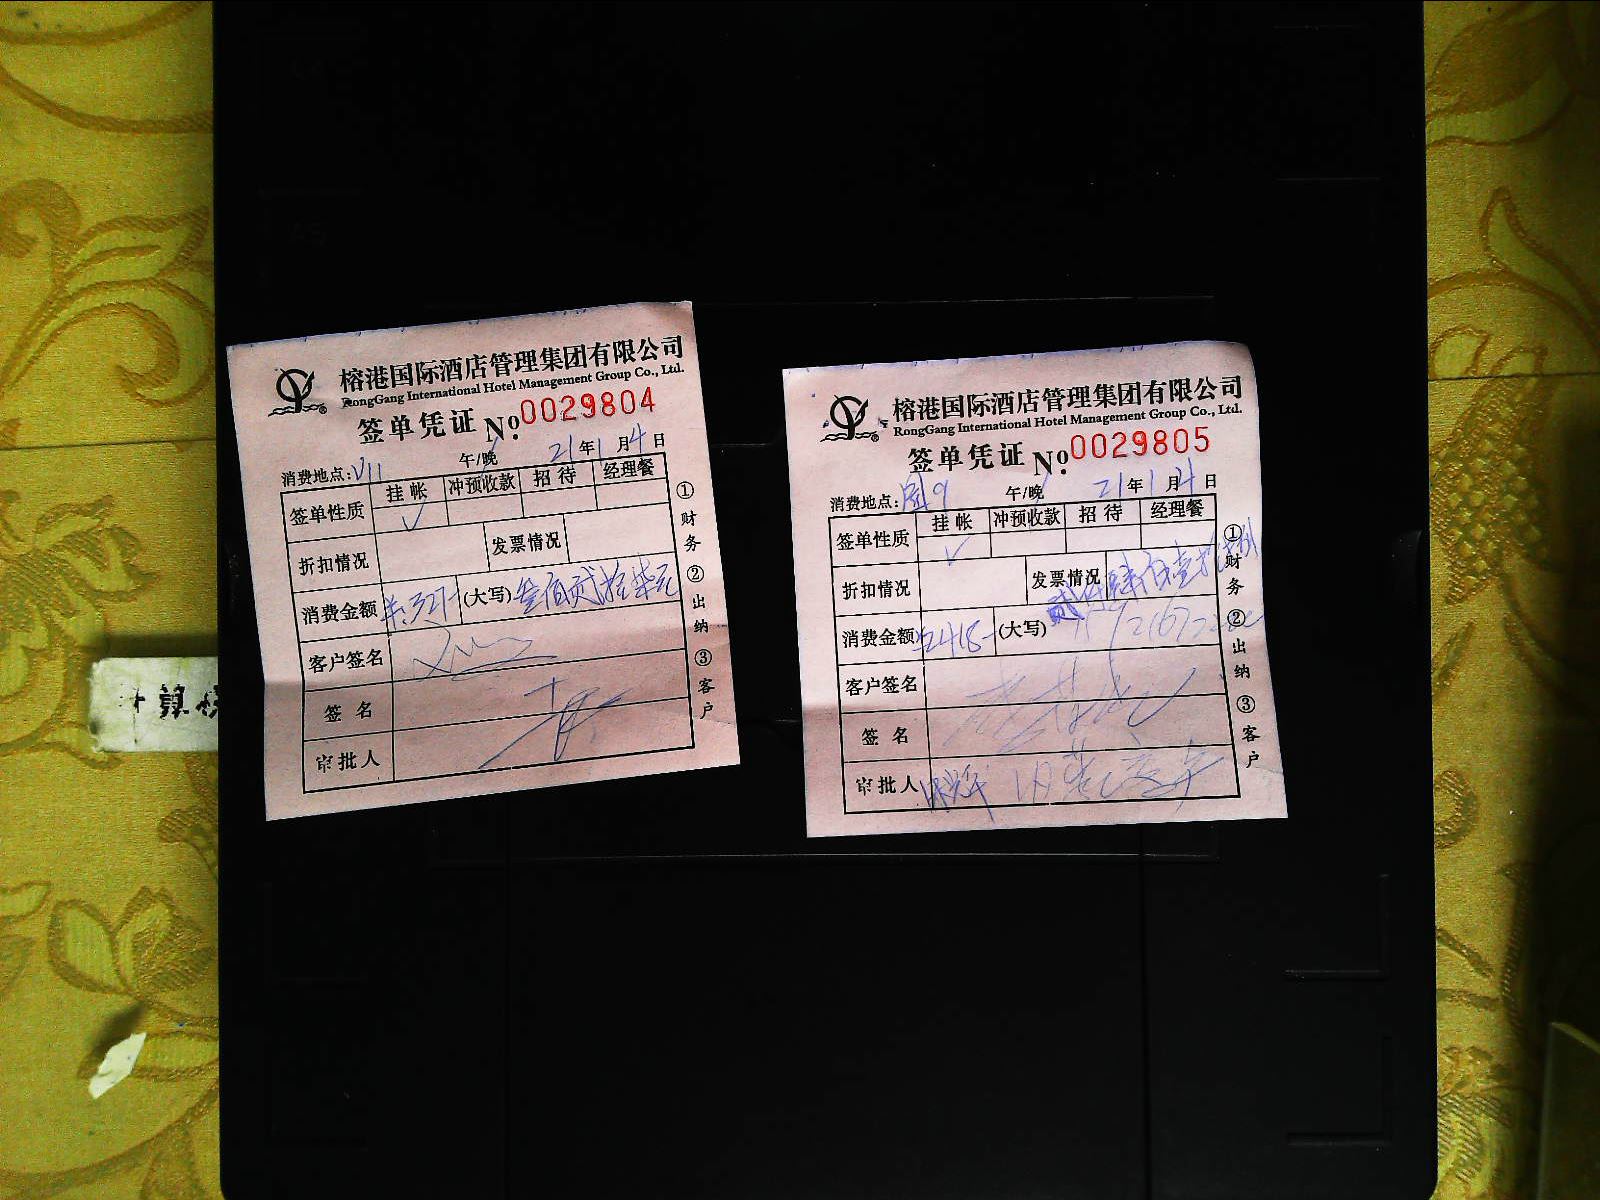 榕港国际酒店管理集团有限公司
RongGang International Hotel Management Group Co., Ltd.
签单凭证 No. 0029804
消费地点: V11 午/晚 21年1月4日
签单性质 挂帐 冲预收款 招待 经理餐
✓
折扣情况 发票情况
消费金额 (大写) 叁佰贰拾柒元
客户签名
签名
审批人
①财务②出纳③客户
榕港国际酒店管理集团有限公司
RongGang International Hotel Management Group Co., Ltd.
签单凭证 No. 0029805
消费地点: 午/晚 21年1月4日
签单性质 挂帐 冲预收款 招待 经理餐
✓
折扣情况 发票情况
消费金额 2418- (大写)
客户签名
签名
审批人
①财务②出纳③客户